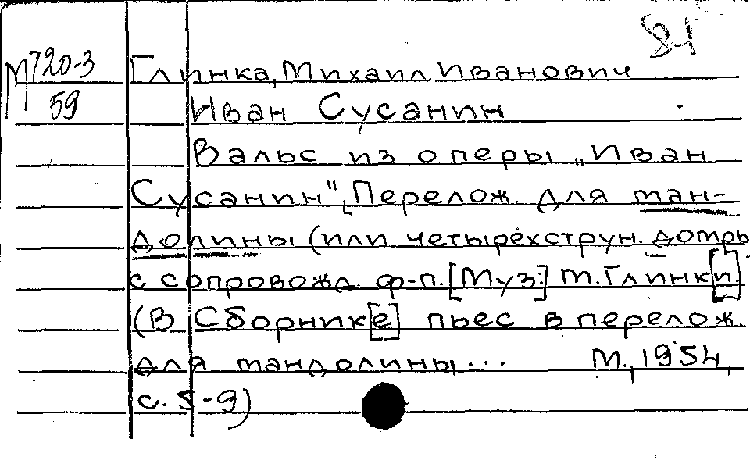 81
М720-3
59
Глинка, Михаил Иванович
Иван Сусанин
Вальс из оперы „Иван
Сусанин", Перелож. для ман-
долины (или четырёхструн. домры
с сопровожд. ф-п. [Муз.] М. Глинк[и]
(В Сборник[е] пьес в перелож.
для мандолины... М., 1954,
с. 5-9)